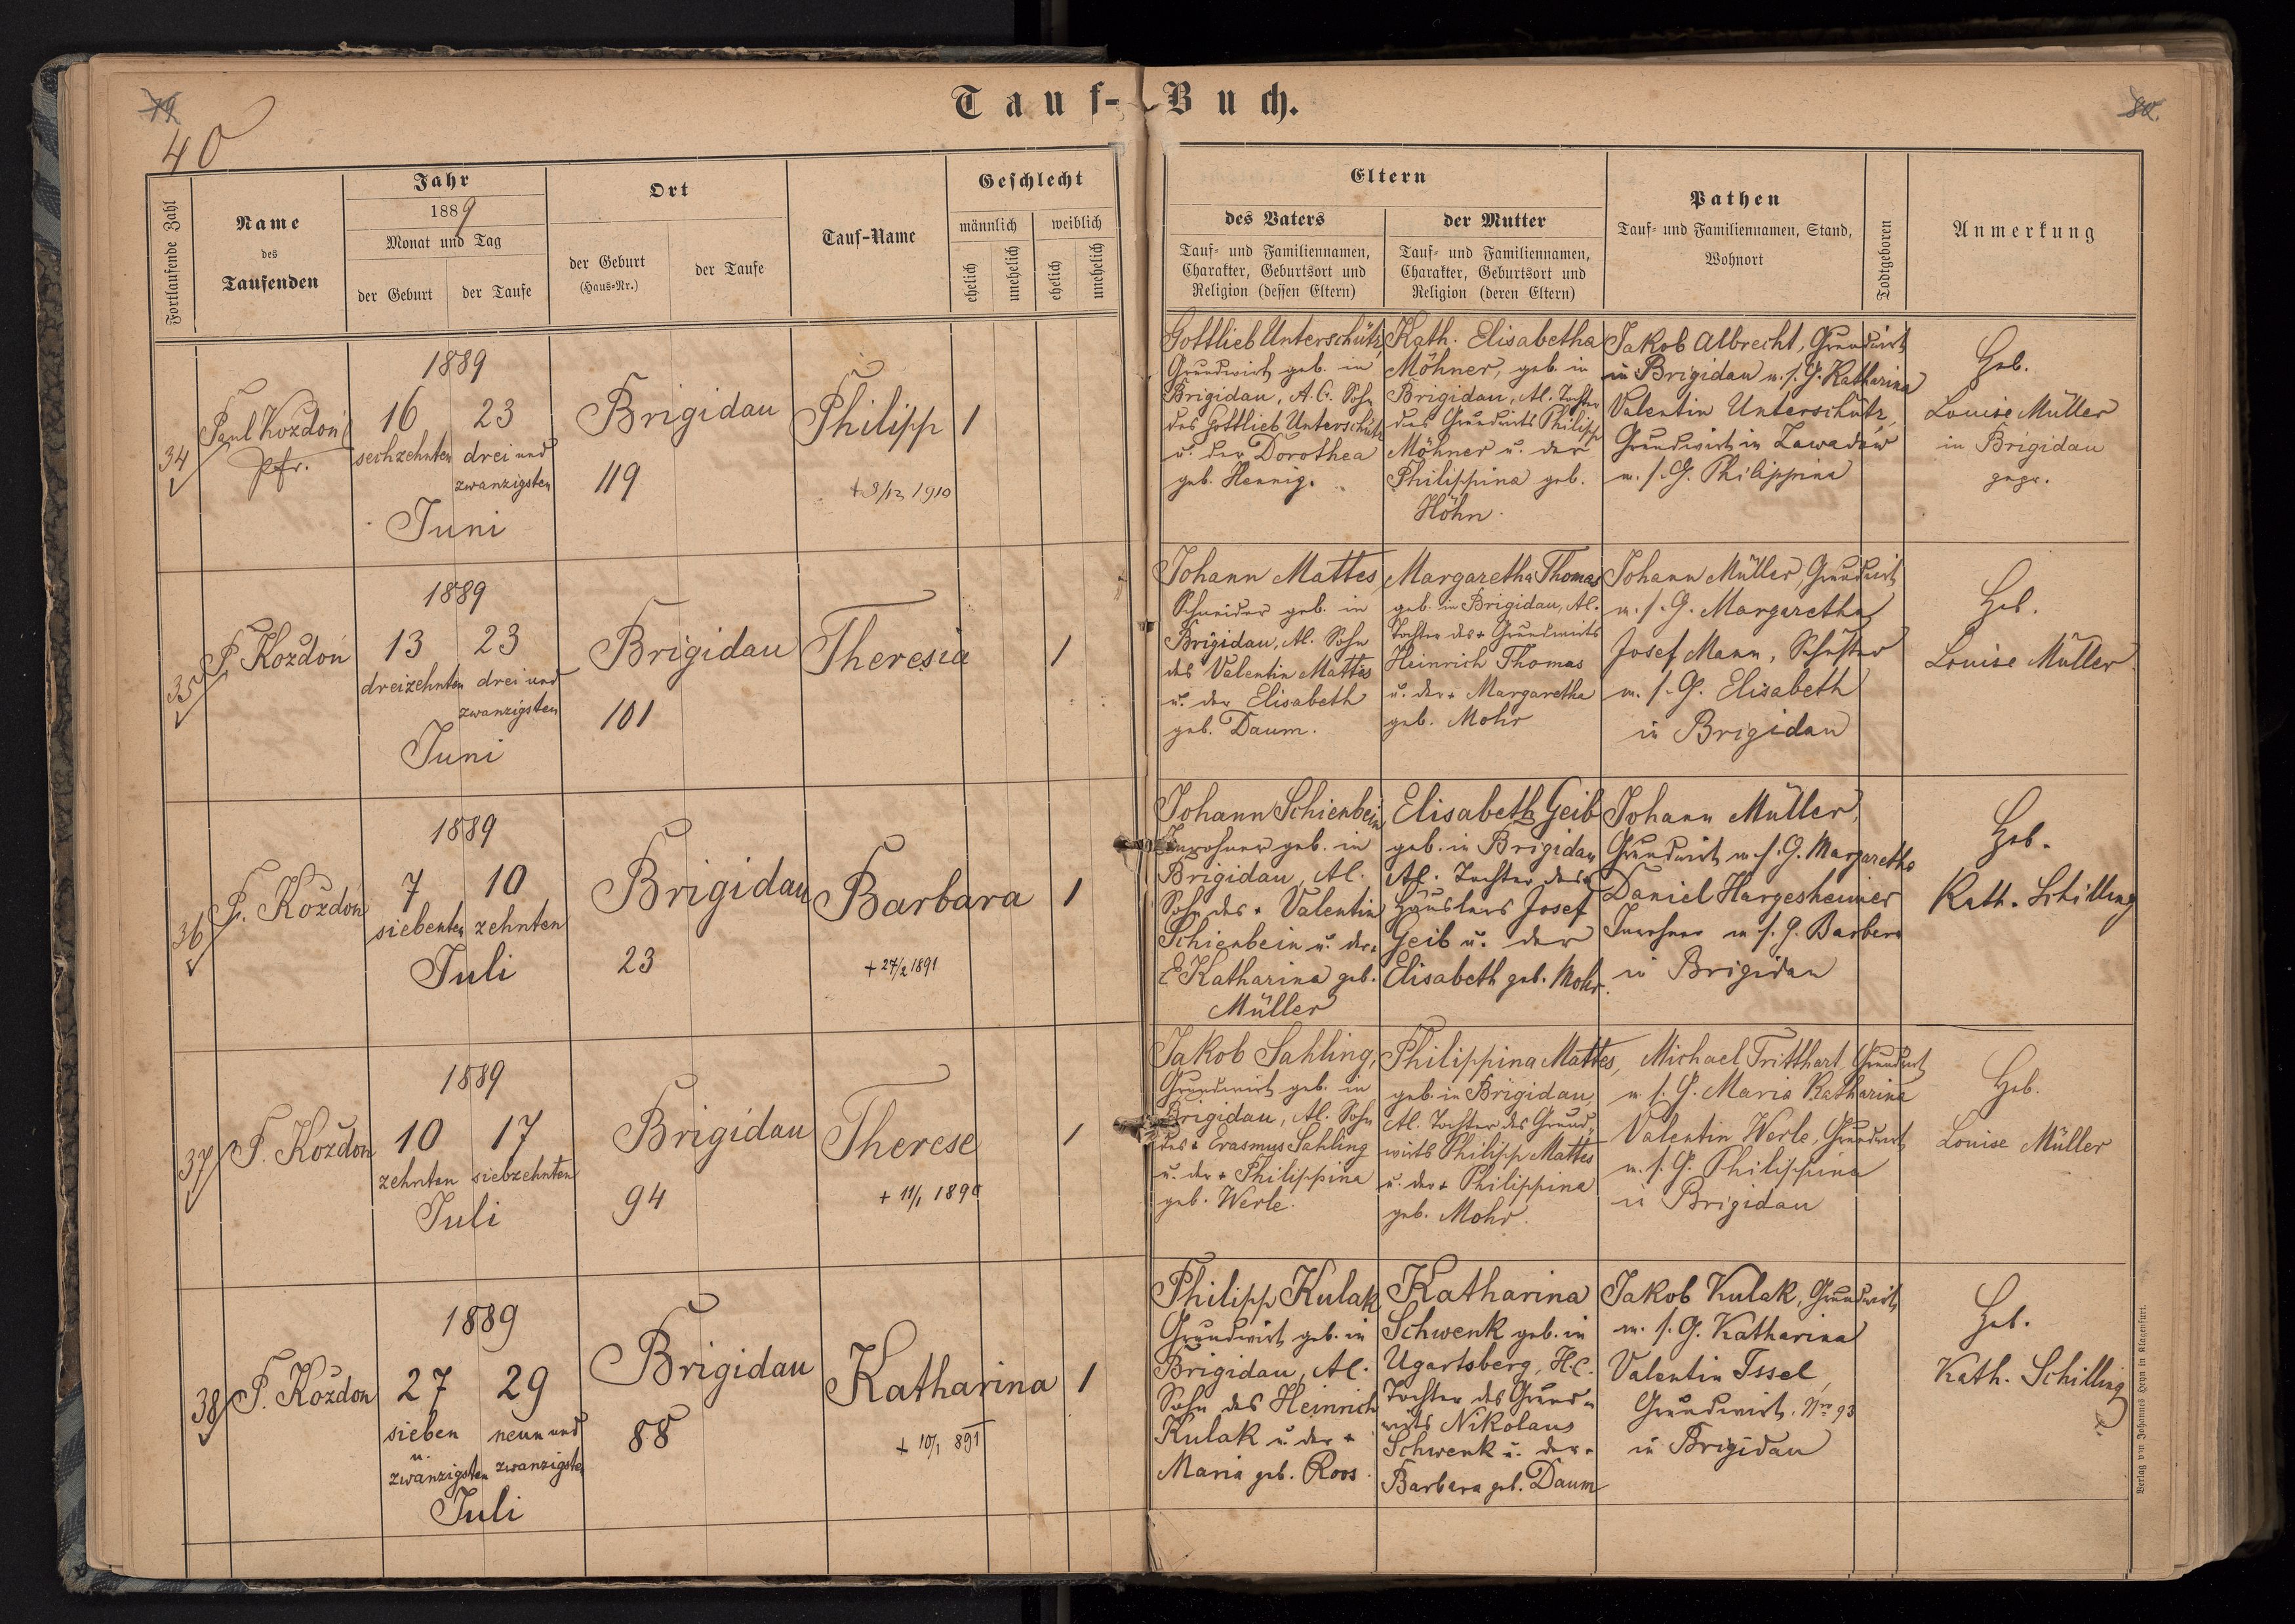 79
40
Tauf-Buch.
80.
Fortlaufende Zahl
Name
des
Taufenden
Jahr
1889
Monat und Tag
der Geburt
der Taufe
Ort
der Geburt
(Haus-Nr.)
der Taufe
Tauf-Name
Geschlecht
männlich
weiblich
ehelich
unehelich
ehelich
unehelich
Eltern
des Vaters
Tauf- und Familiennamen,
Charakter, Geburtsort und
Religion (dessen Eltern)
der Mutter
Tauf- und Familiennamen,
Charakter, Geburtsort und
Religion (deren Eltern)
Pathen
Tauf- und Familiennamen, Stand,
Wohnort
Todtgeboren
Anmerkung
34
Paul Kozdoń
Pfr.
1889
16 23
sechzehnten drei und
zwanzigsten
Juni
Brigidau
119
Philipp
+ 3/12 1910
1
Gottlieb Unterschütz,
Grundwirt geb. in
Brigidau, A.C. Sohn
des Gottlieb Unterschütz
u. der Dorothea
geb. Hennig.
Kath. Elisabetha
Möhner, geb. in
Brigidau, Al. Tochter
des Grundwirts Philipp
Möhner u. der
Philippina geb.
Höhn.
Jakob Albrecht, Grundwirt
in Brigidau m. s. G. Katharina
Valentin Unterschütz,
Grundwirt in Zawadów
m. s. G. Philippina
Heb.
Louise Müller
in Brigidau
gepr.
35
P. Kozdoń
1889
13 23
dreizehnten drei und
zwanzigsten
Juni
Brigidau
101
Theresia
1
Johann Mattes,
Schneider geb. in
Brigidau, Al. Sohn
des Valentin Mattes
u. der Elisabeth
geb. Daum.
Margaretha Thomas
geb. in Brigidau, Al.
Tochter des + Grundwirts
Heinrich Thomas
u. der + Margaretha
geb. Mohr
Johann Müller, Grundwirt
m. s. G. Margaretha
Josef Mann, Schuster
m. s. G. Elisabeth
in Brigidau
Heb.
Louise Müller.
36
P. Kozdoń
1889
7 10
siebenten zehnten
Juli
Brigidau
23
Barbara
+ 27/2 1891
1
Johann Schienbein,
Inwohner geb. in
Brigidau, Al.
Sohn des + Valentin
Schienbein u. der +
E Katharina geb.
Müller
Elisabeth Geib
geb. in Brigidau
Al. Tochter des
Häuslers Josef
Geib u. der
Elisabeth geb. Mohr.
Johann Müller,
Grundwirt m. s. G. Margaretha
Daniel Hargesheimer
Inwohner m. s. G. Barbara
in Brigidau
Heb.
Kath. Schilling
37
P. Kozdon
1889
10 17
zehnten siebzehnten
Juli
Brigidau
94
Therese
+ 11/1 1890
1
Jakob Sahling,
Grundwirt geb. in
Brigidau, Al. Sohn
des + Erasmus Sahling
u. der + Philippina
geb. Werle.
Philippina Mattes,
geb. in Brigidau,
Al. Tochter des Grund-
wirts Philipp Mattes
u. der + Philippina
geb. Mohr.
Michael Tritthart, Grundwirt
m. s. G. Maria Katharina
Valentin Werle, Grundwirt
m. s. G. Philippina
in Brigidau
Heb.
Louise Müller
38
P. Kozdon
1889
27 29
sieben neun und
u.
zwanzigsten zwanzigsten
Juli
Brigidau
88
Katharina
+ 10/1 891
1
Philipp Kulak,
Grundwirt geb. in
Brigidau, Al.
Sohn des Heinrich
Kulak u. der +
Maria geb. Roos.
Katharina
Schwenk geb. in
Ugartsberg, H.C.
Tochter des Grund-
wirts Nikolaus
Schwenk u. der +
Barbara geb. Daum
Jakob Kulak, Grundwirt
m. s. G. Katharina
Valentin Issel,
Grundwirt. Nro 93
in Brigidau
Heb.
Kath. Schilling
Verlag von Johannes Heyn in Klagenfurt.